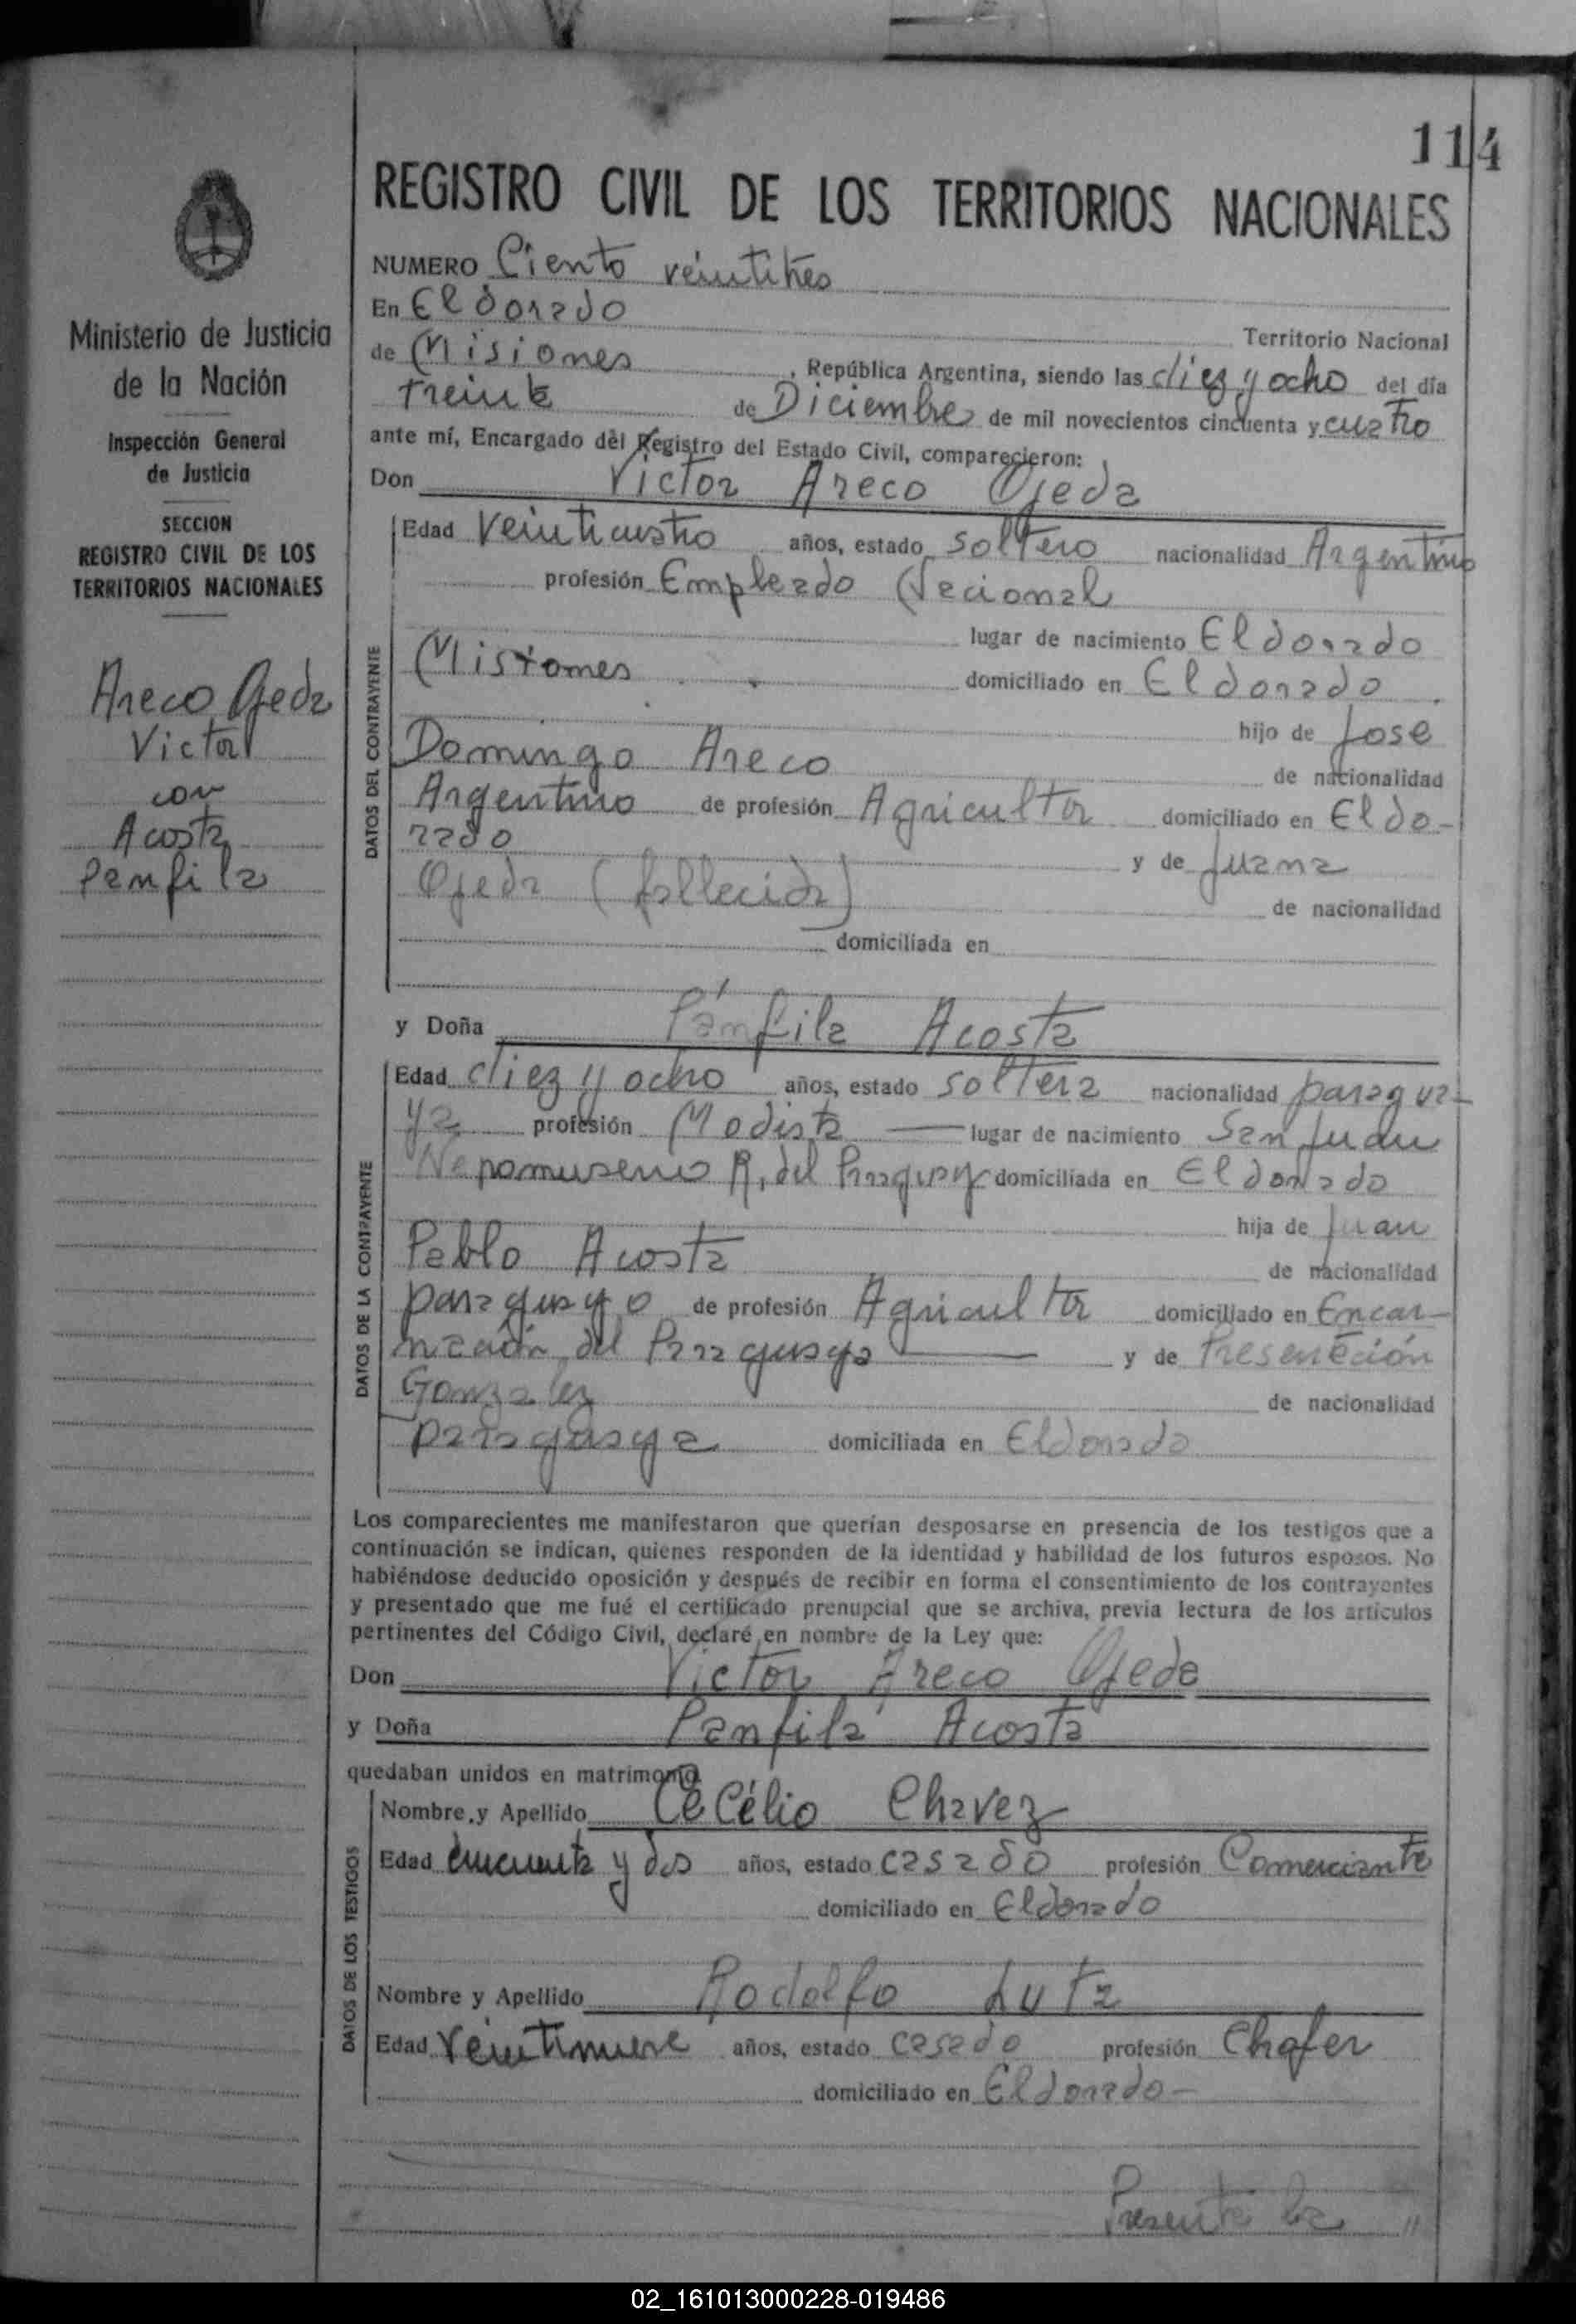 114
REGISTRO CIVIL DE LOS TERRITORIOS NACIONALES
Ministerio de Justicia
de la Nación
Inspección General
de Justicia
SECCION
REGISTRO CIVIL DE LOS
TERRITORIOS NACIONALES
Areco Ojeda
Victor
con
Acosta
Panfila
NUMERO Ciento veintitres
En Eldorado
Territorio Nacional
de Misiones, República Argentina, siendo las diez y ocho del día
treinta de Diciembre de mil novecientos cincuenta y cuatro
ante mí, Encargado del Registro del Estado Civil, comparecieron:
Don Victor Areco Ojeda
DATOS DEL CONTRAYENTE
Edad Veinticuatro años, estado soltero nacionalidad Argentino
profesión Empleado Nacional
lugar de nacimiento Eldorado
Misiones domiciliado en Eldorado
hijo de Jose
Domingo Areco de nacionalidad
Argentino de profesión Agricultor domiciliado en Eldo-
rado y de Juana
Ojeda (fallecida) de nacionalidad
domiciliada en
y Doña Pánfila Acosta
DATOS DE LA CONTRAYENTE
Edad diez y ocho años, estado soltera nacionalidad paragua-
ya profesión Modista lugar de nacimiento San Juan
Nepomuseno R. del Paraguay domiciliada en Eldorado
hija de Juan
Pablo Acosta de nacionalidad
paraguayo de profesión Agricultor domiciliado en Encar-
nación del Paraguay y de Presentación
Gonzalez de nacionalidad
paraguaya domiciliada en Eldorado
Los comparecientes me manifestaron que querían desposarse en presencia de los testigos que a
continuación se indican, quienes responden de la identidad y habilidad de los futuros esposos. No
habiéndose deducido oposición y después de recibir en forma el consentimiento de los contrayentes
y presentado que me fué el certificado prenupcial que se archiva, previa lectura de los artículos
pertinentes del Código Civil, declaré en nombre de la Ley que:
Don Victor Areco Ojeda
y Doña Panfila Acosta
quedaban unidos en matrimonio
DATOS DE LOS TESTIGOS
Nombre y Apellido Cecélio Chavez
Edad cincuenta y dos años, estado casado profesión Comerciante
domiciliado en Eldorado
Nombre y Apellido Rodolfo Lutz
Edad Veintinueve años, estado casado profesión Chofer
domiciliado en Eldorado-
Presente la "
02_161013000228-019486